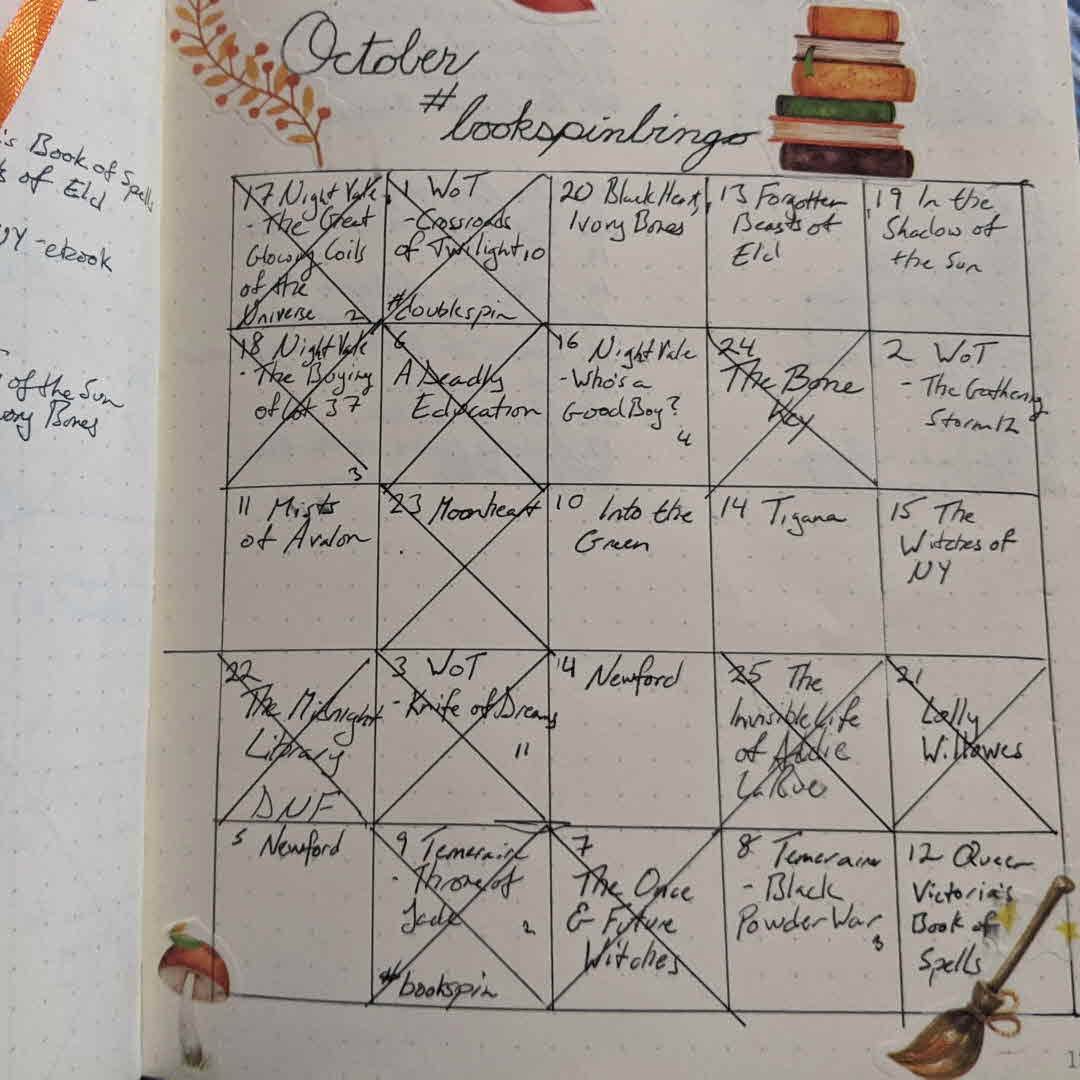 's Book of Spells
s of Eld
NY - ebook
of the Sun
vory Bones
October
#bookspinbingo
17 Night Vale
- The Great
Glowing Coils
of the
Universe 2
1 WoT
- Crossroads
of Twilight 10
#doublespin
20 Black Heart,
Ivory Bones
13 Forgotten
Beasts of
Eld
19 In the
Shadow of
the Sun
18 Night Vale
- The Buying
of Lot 37
3
6
A Deadly
Education
16 Night Vale
- Who's a
Good Boy?
4
24
The Bone
Key
2 WoT
- The Gathering
Storm 12
11 Mists
of Avalon
23 Moonheart
10 Into the
Green
14 Tigana
15 The
Witches of
NY
22
The Midnight
Library
DNF
3 WoT
- Knife of Dreams
11
4 Newford
25 The
Invisible Life
of Addie
LaRue
21
Lolly
Willowes
5 Newford
9 Temeraire
- Throne of
Jade
2
#bookspin
7
The Once
& Future
Witches
8 Temeraire
- Black
Powder War
3
12 Queen
Victoria's
Book of
Spells